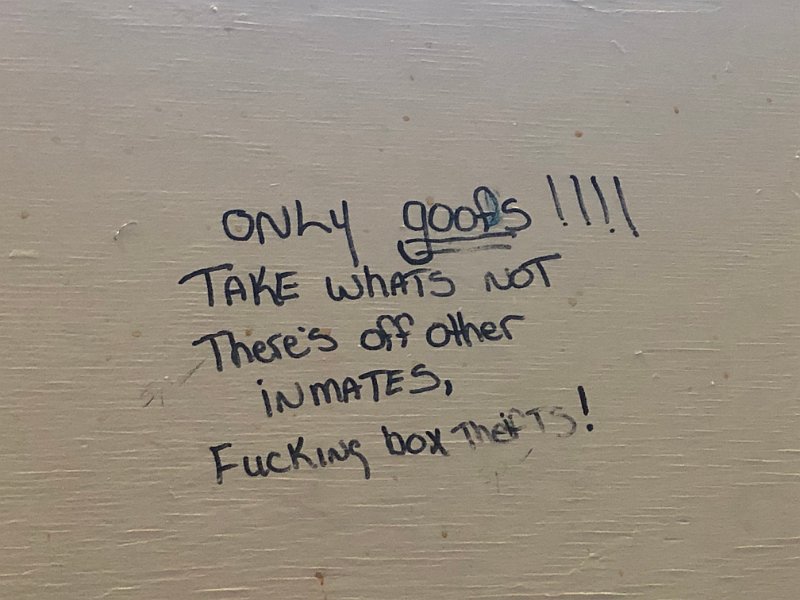 ONLY goofs !!!!
TAKE WHATS NOT
There's off other
INMATES,
Fucking box Theifts!